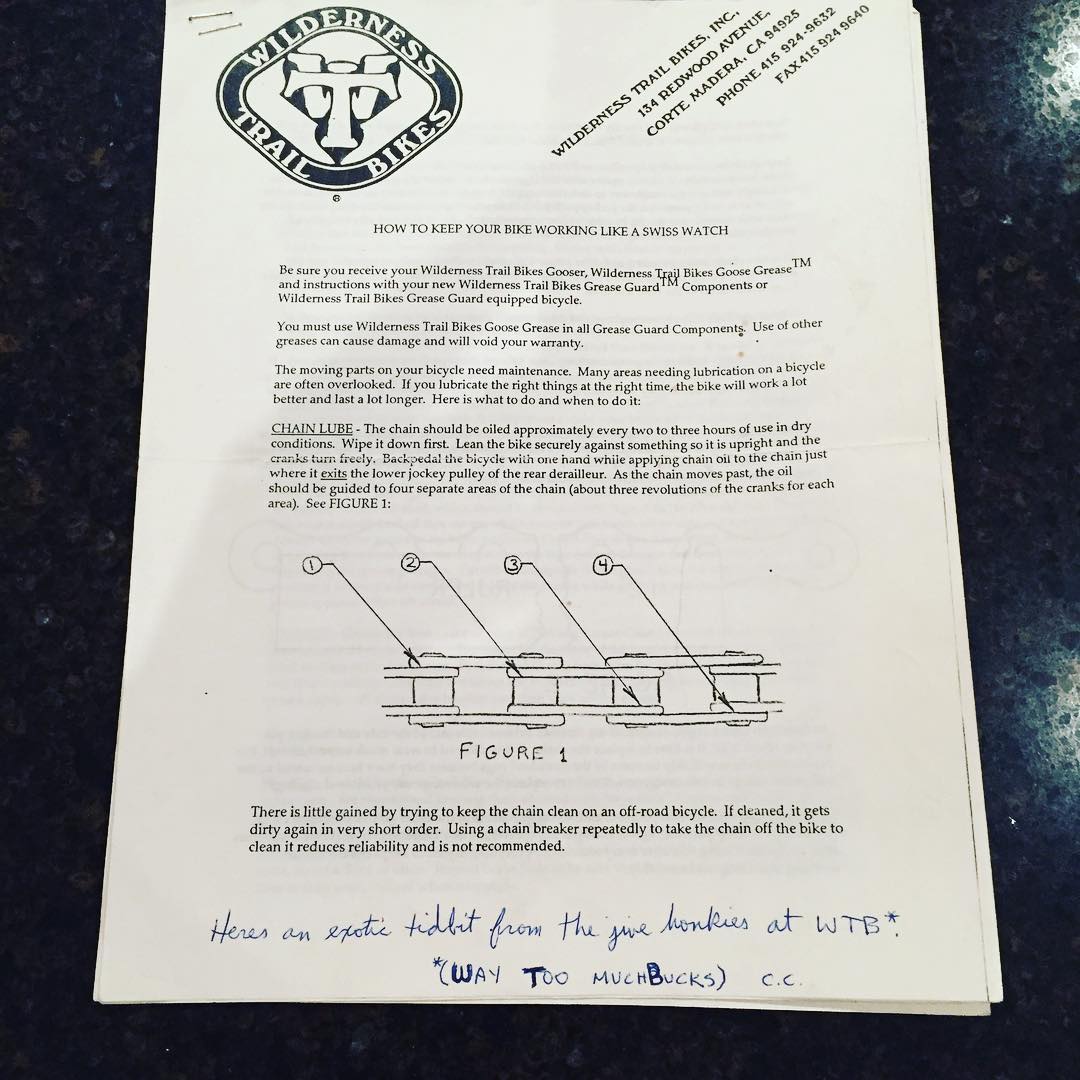 WILDERNESS
TRAIL BIKES
®
WILDERNESS TRAIL BIKES, INC.
134 REDWOOD AVENUE,
CORTE MADERA, CA 94925
PHONE 415 924-9632
FAX 415 924 9640
HOW TO KEEP YOUR BIKE WORKING LIKE A SWISS WATCH
Be sure you receive your Wilderness Trail Bikes Gooser, Wilderness Trail Bikes Goose Grease™
and instructions with your new Wilderness Trail Bikes Grease Guard™ Components or
Wilderness Trail Bikes Grease Guard equipped bicycle.
You must use Wilderness Trail Bikes Goose Grease in all Grease Guard Components. Use of other
greases can cause damage and will void your warranty.
The moving parts on your bicycle need maintenance. Many areas needing lubrication on a bicycle
are often overlooked. If you lubricate the right things at the right time, the bike will work a lot
better and last a lot longer. Here is what to do and when to do it:
CHAIN LUBE - The chain should be oiled approximately every two to three hours of use in dry
conditions. Wipe it down first. Lean the bike securely against something so it is upright and the
cranks turn freely. Backpedal the bicycle with one hand while applying chain oil to the chain just
where it exits the lower jockey pulley of the rear derailleur. As the chain moves past, the oil
should be guided to four separate areas of the chain (about three revolutions of the cranks for each
area). See FIGURE 1:
1 2 3 4
FIGURE 1
There is little gained by trying to keep the chain clean on an off-road bicycle. If cleaned, it gets
dirty again in very short order. Using a chain breaker repeatedly to take the chain off the bike to
clean it reduces reliability and is not recommended.
Heres an exotic tidbit from the jive honkies at WTB*.
*(WAY TOO MUCHBUCKS) C.C.